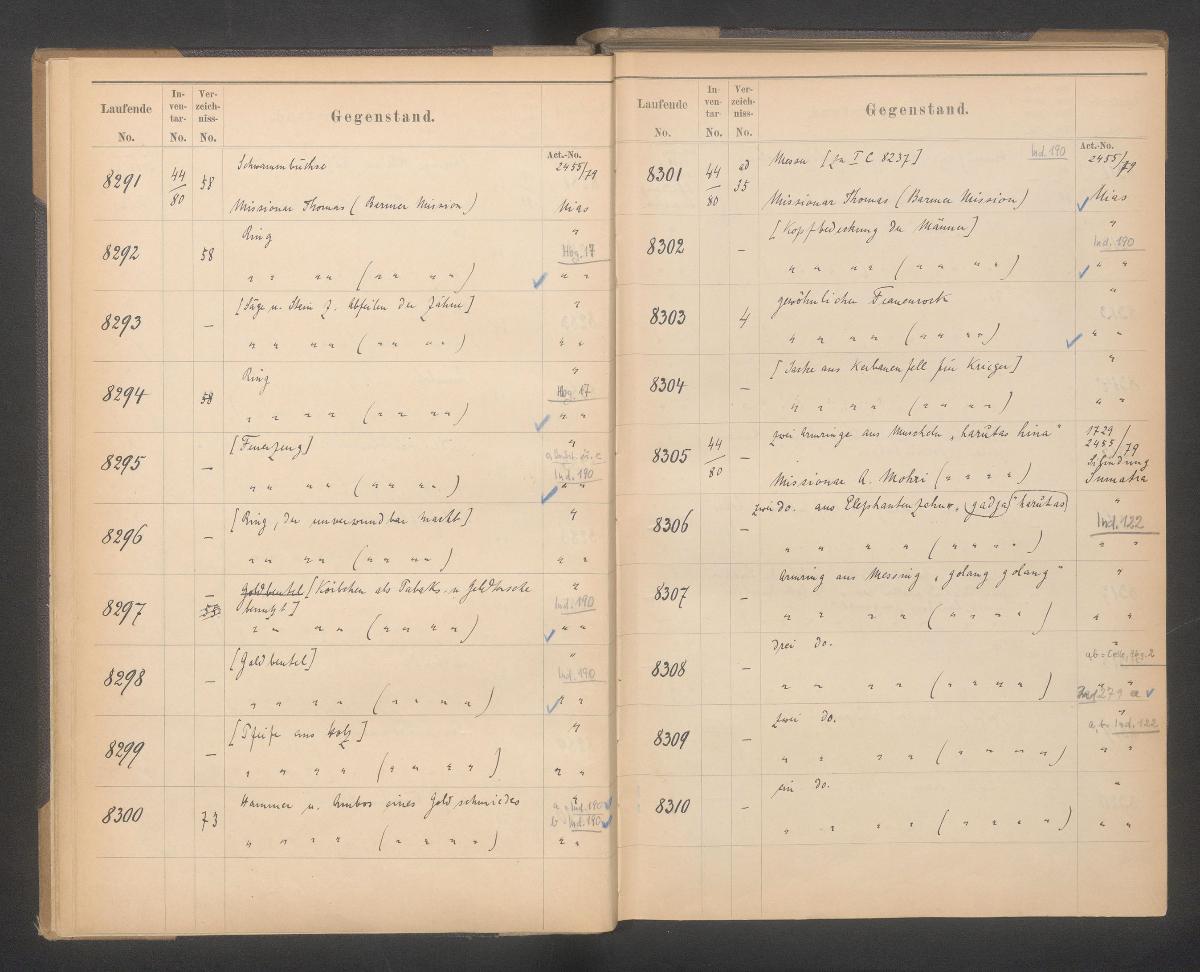 Laufende No.
In-ven-tar-No.
Ver-zeich-niss-No.
Gegenstand.
8291 44/80 58 Schwammbüchse Act.-No. 2455/79
Missionar Thomas (Barmer Mission) Nias
8292 58 Ring "
" " " " (" " " ") Hbg. 17 " "
8293 – [Säge u. Stein z. Abfeilen der Zähne] "
" " " " (" " " ") " "
8294 58 Ring "
" " " " (" " " ") Hbg. 17 " "
8295 – [Feuerzeug] "
" " " " (" " " ") Ind. 190 " "
8296 – [Ring, der unverwundbar macht] "
" " " " (" " " ") " "
8297 – 55 Goldbeutel [Körbchen als Tabaks- u. Geldtasche "
benutzt] Ind. 190
" " " " (" " " ") " "
8298 – [Goldbeutel] "
" " " " (" " " ") Ind. 190 " "
8299 – [Pfeife aus Holz] "
" " " " (" " " ") " "
8300 73 Hammer u. Ambos eines Goldschmiedes "
a = Ind. 190
b = Ind. 190
" " " " (" " " ") " "
Laufende No.
In-ven-tar-No.
Ver-zeich-niss-No.
Gegenstand.
8301 44/80 ad 35 Messer [zu I C 8237] Ind. 190 Act.-No. 2455/79
Missionar Thomas (Barmer Mission) Nias
8302 – [Kopfbedeckung der Männer] "
" " " " (" " " ") Ind. 190 " "
8303 4 gewöhnlicher Frauenrock "
" " " " (" " " ") " "
8304 – [Jacke aus Kerbauenfell für Krieger] "
" " " " (" " " ") " "
8305 44/80 – zwei Armringe aus Muscheln „harutas hina" 1729 2455/79
Missionar A. Mohri (" " " ") Sumatra
8306 – zwei do. aus Elephantenzahn, „gadja" harutas "
" " " " (" " " ") Ind. 122 " "
8307 – Armring aus Messing „golang golang" "
" " " " (" " " ") " "
8308 – drei do. "
" " " " (" " " ") " "
Ind 271 a
8309 – zwei do. "
a, b = Ind. 122
" " " " (" " " ") " "
8310 – ein do. "
" " " " (" " " ") " "